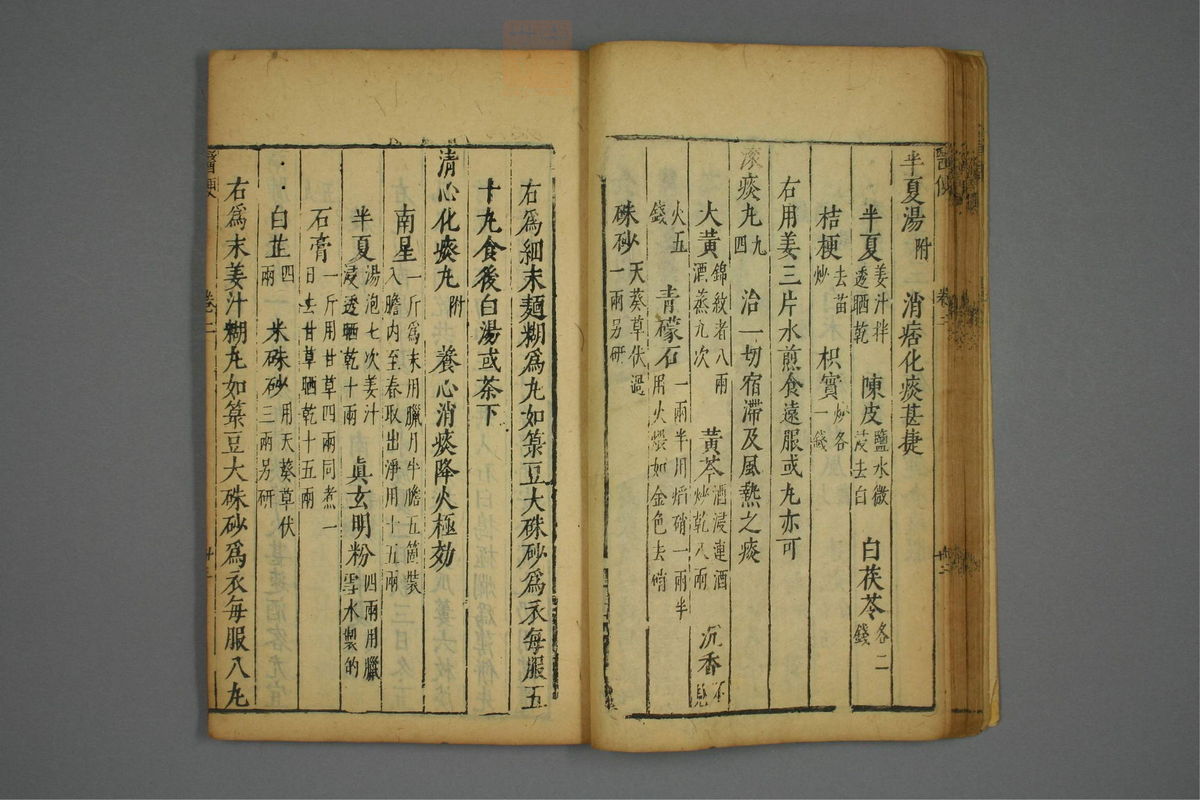 半夏湯附 消痞化痰甚捷
半夏姜汁拌透晒乾 陳皮鹽水微浸去白 白茯苓各二錢
桔梗去苗炒 枳實炒各一錢
右用姜三片水煎食遠服或丸亦可
滚痰丸九四 治一切宿滯及風熱之痰
大黃錦紋者八兩酒蒸九次 黃芩酒浸連酒炒乾八兩 沉香不見
火五錢 青礞石一兩半用熖硝一兩半用火煨如金色去硝
硃砂天葵草伏過一兩另研
右爲細末麵糊爲丸如菉豆大硃砂爲衣每服五
十丸食後白湯或茶下
清心化痰丸附 養心消痰降火極効
南星一斤爲末用臘月牛膽五箇裝入膽内至春取出淨用十五兩
半夏湯泡七次姜汁浸透晒乾十兩 眞玄明粉四兩用臘雪水製的
石膏一斤用甘草四兩同煮一日去甘草晒乾十五兩
白芷四兩 米硃砂用天葵草伏三兩另研
右爲末姜汁糊丸如菉豆大硃砂爲衣每服八九
卷二